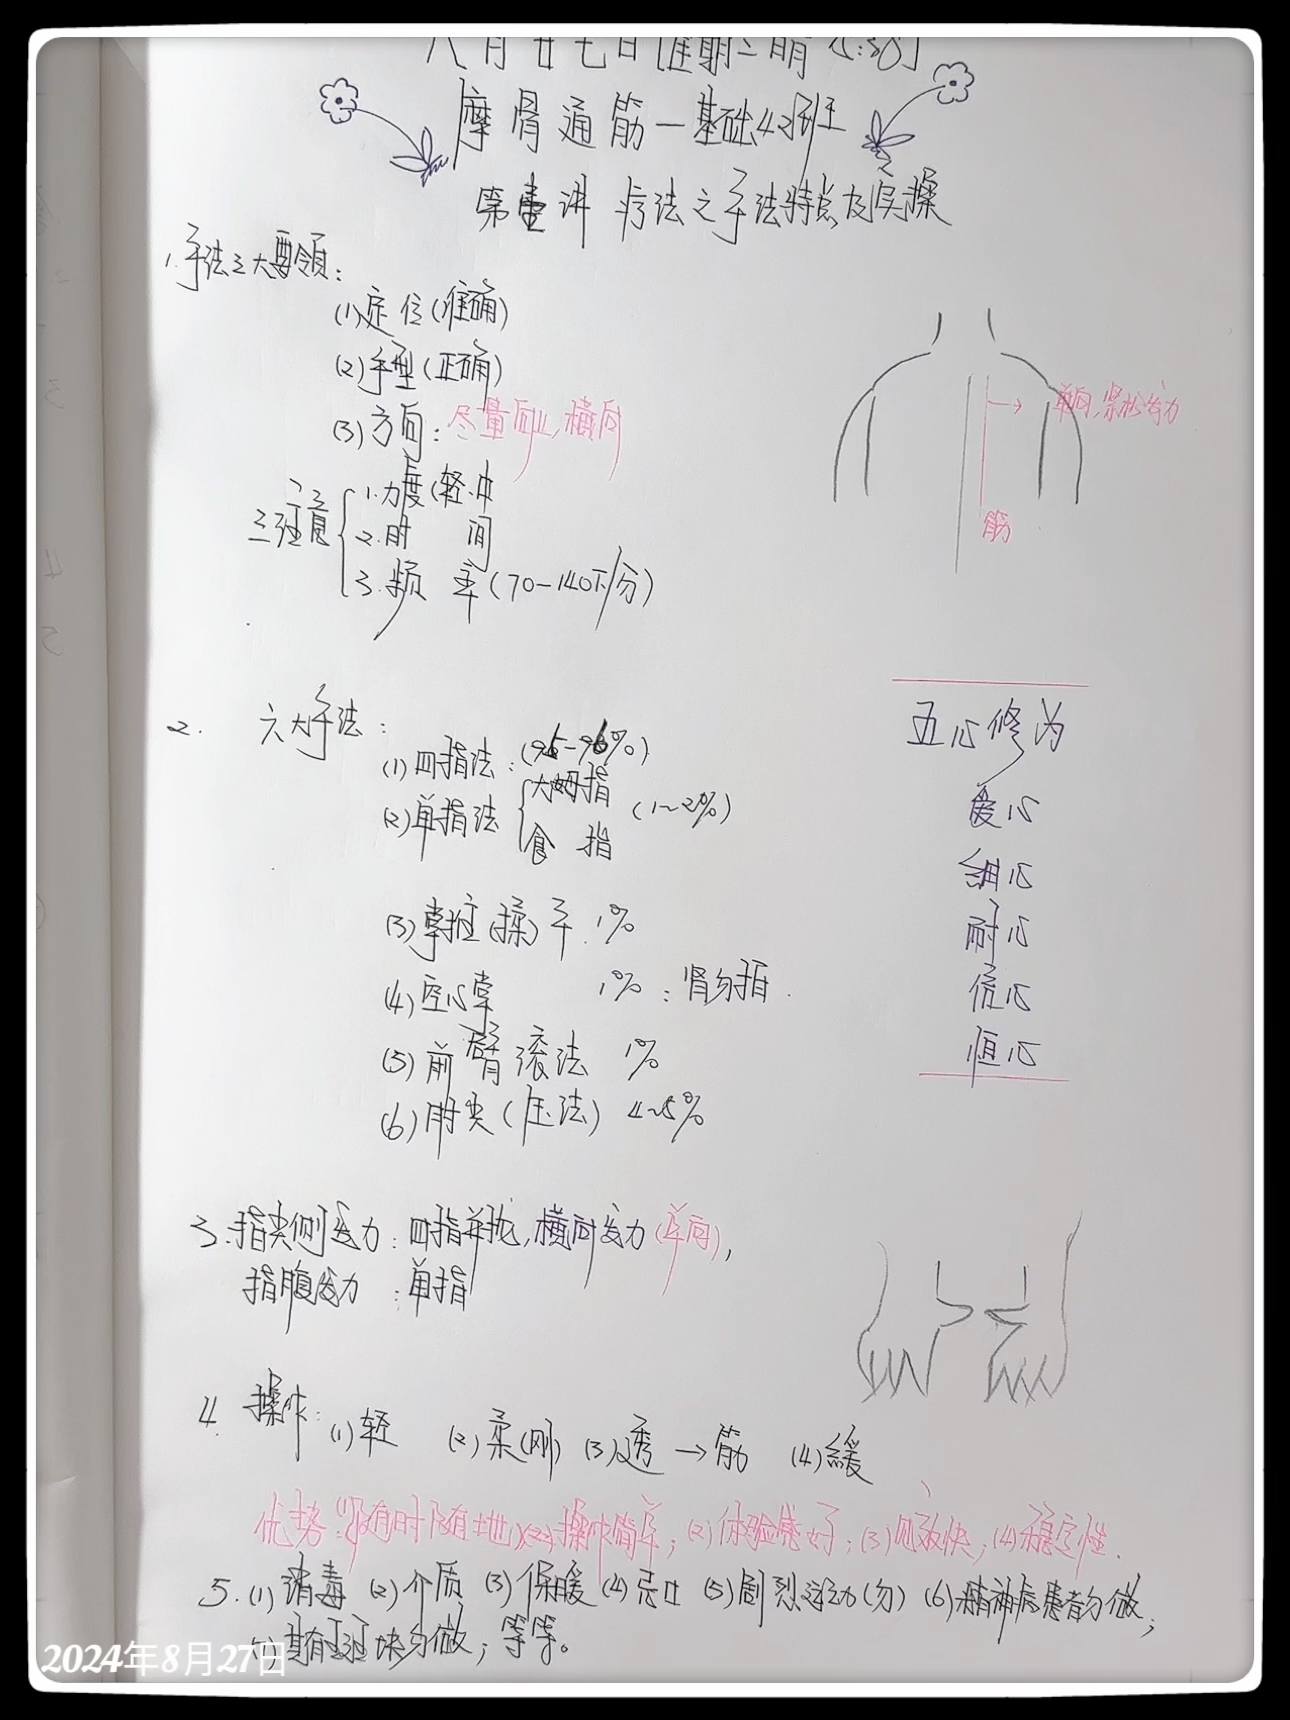 八月廿七日[星期二晴
摩骨通筋一基础42班
第壹讲 疗法之手法特点及实操
1.手法三大要领:
(1)定位(准确)
(2)手型(正确)
(3)方向:尽量 横向
三注意
1.力度(轻.中
2.时 间
3.频 率(70-140下/分)
单向,紧松发力
筋
2. 六大手法:
(1)四指法:(95-96%)
(2)单指法 大姆指 食 指 (1~2%)
(3)掌 (揉) 1%
(4)空心掌 1%:肾勿指.
(5)前臂滚法 1%
(6)肘尖(压法) 4~5%
五心修为
爱心
细心
耐心
信心
恒心
3.指尖侧发力:四指并拢,横向发力(单向),
指腹发力:单指
4.操作:(1)轻 (2)柔(刚) (3)透→筋 (4)緩
优势: 操作简单;(2)体验感好;(3)见效快;(4)稳定性.
5.(1)消毒 (2)介质 (3)保暖 (4)忌口 (5)剧烈运动(勿) (6)精神病患者勿做;
块勿做;等等。
2024年8月27日